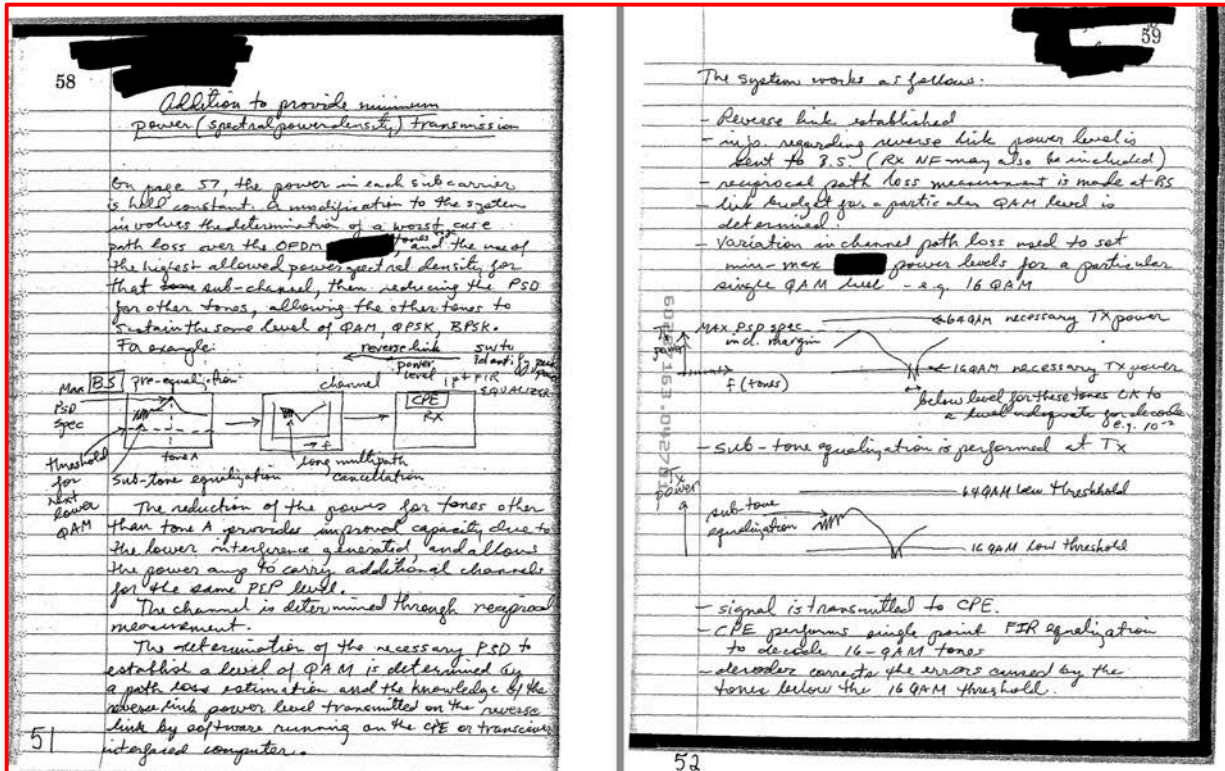 58
Addition to provide minimum
power (spectral power density) transmission
On page 57, the power in each subcarrier
is held constant. A modification to the system
involves the determination of a worst case
path loss over the OFDM tones, and the use of
the highest allowed power spectral density for
that sub-channel, then reducing the PSD
for other tones, allowing the other tones to
sustain the same level of QAM, QPSK, BPSK.
For example:
reverse link
power
level
SW to
identify
1 pt FIR
EQUALIZER
Max
PSD
spec
B.S
pre-equalization
channel
CPE
RX
tone A
f
threshold
for
next
lower
QAM
sub-tone equalization
long multipath
cancellation
The reduction of the power for tones other
than tone A provides improved capacity due to
the lower interference generated, and allows
the power amp to carry additional channels
for the same PSD level.
The channel is determined through reciprocal
measurement.
The determination of the necessary PSD to
establish a level of QAM is determined by
a path loss estimation and the knowledge of the
reverse link power level transmitted on the reverse
link by software running on the CPE or transceiver
interfaced computer.
51
59
The system works as follows:
- Reverse link established
- info. regarding reverse link power level is
sent to B.S (RX NF may also be included)
- reciprocal path loss measurement is made at BS
- link budget for a particular QAM level is
determined.
- variation in channel path loss used to set
min-max power levels for a particular
single QAM level - e.g. 16 QAM
Tx
power
MAX PSD spec
incl. margin
64QAM necessary TX power
16QAM necessary TX power
f (tones)
below level for these tones OK to
a level adequate for decode
e.g. 10⁻²
- sub-tone equalization is performed at Tx
Tx
power
64QAM low threshhold
sub tone
equalization
16 QAM low threshold
- signal is transmitted to CPE.
- CPE performs single point FIR equalization
to decode 16-QAM tones
- decoder corrects the errors caused by the
tones below the 16 QAM threshold.
52